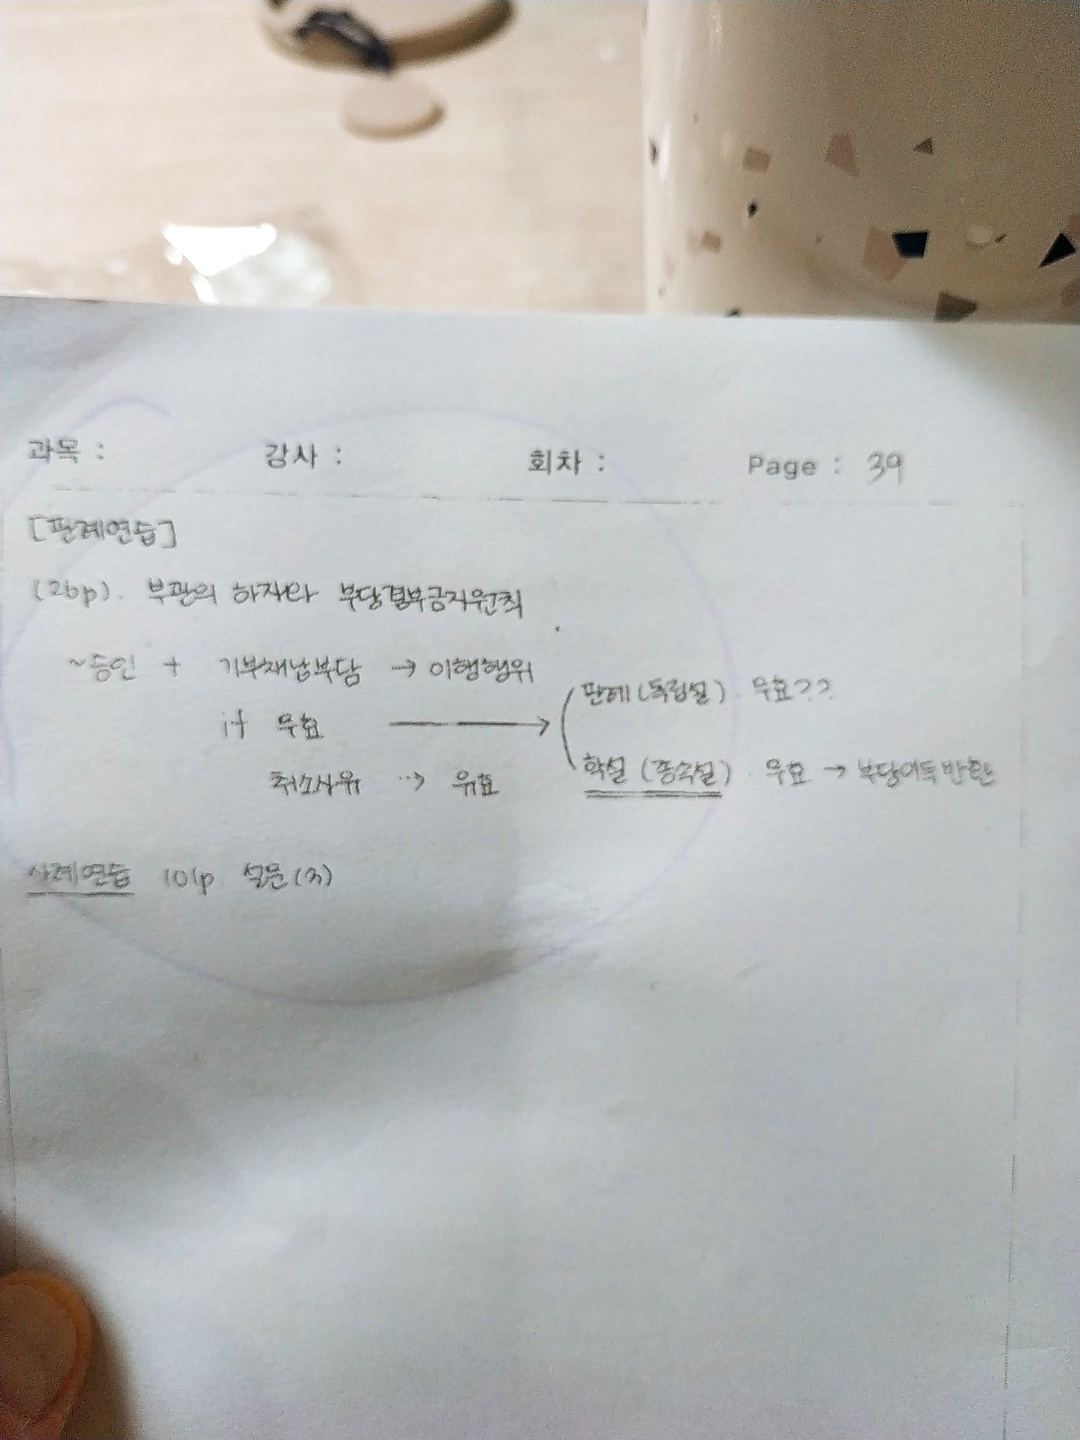 과목 : 강사 : 회차 : Page : 39
[판례연습]
(26p). 부관의 하자와 부당결부금지원칙
~승인 + 기부채납부담 → 이행행위
if 무효 → 판례(독립설). 무효??
학설 (종속설). 무효 → 부당이득반환
취소사유 ⇢ 유효
사례연습 101p 설문(3)